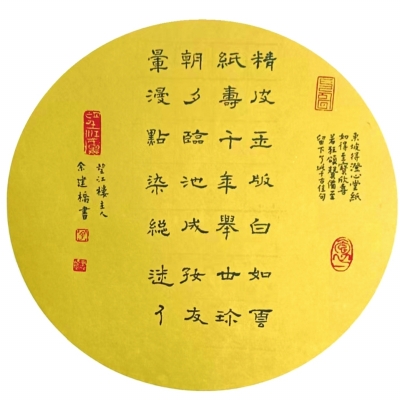 東坡得澄心堂紙
如得至寶欣喜
若狂頌贊備至
留下了千古佳句
精皮玉版白如雲
紙壽千年舉世珍
朝夕臨池成好友
暈漫點染總迷人
望江樓主人
建橋書